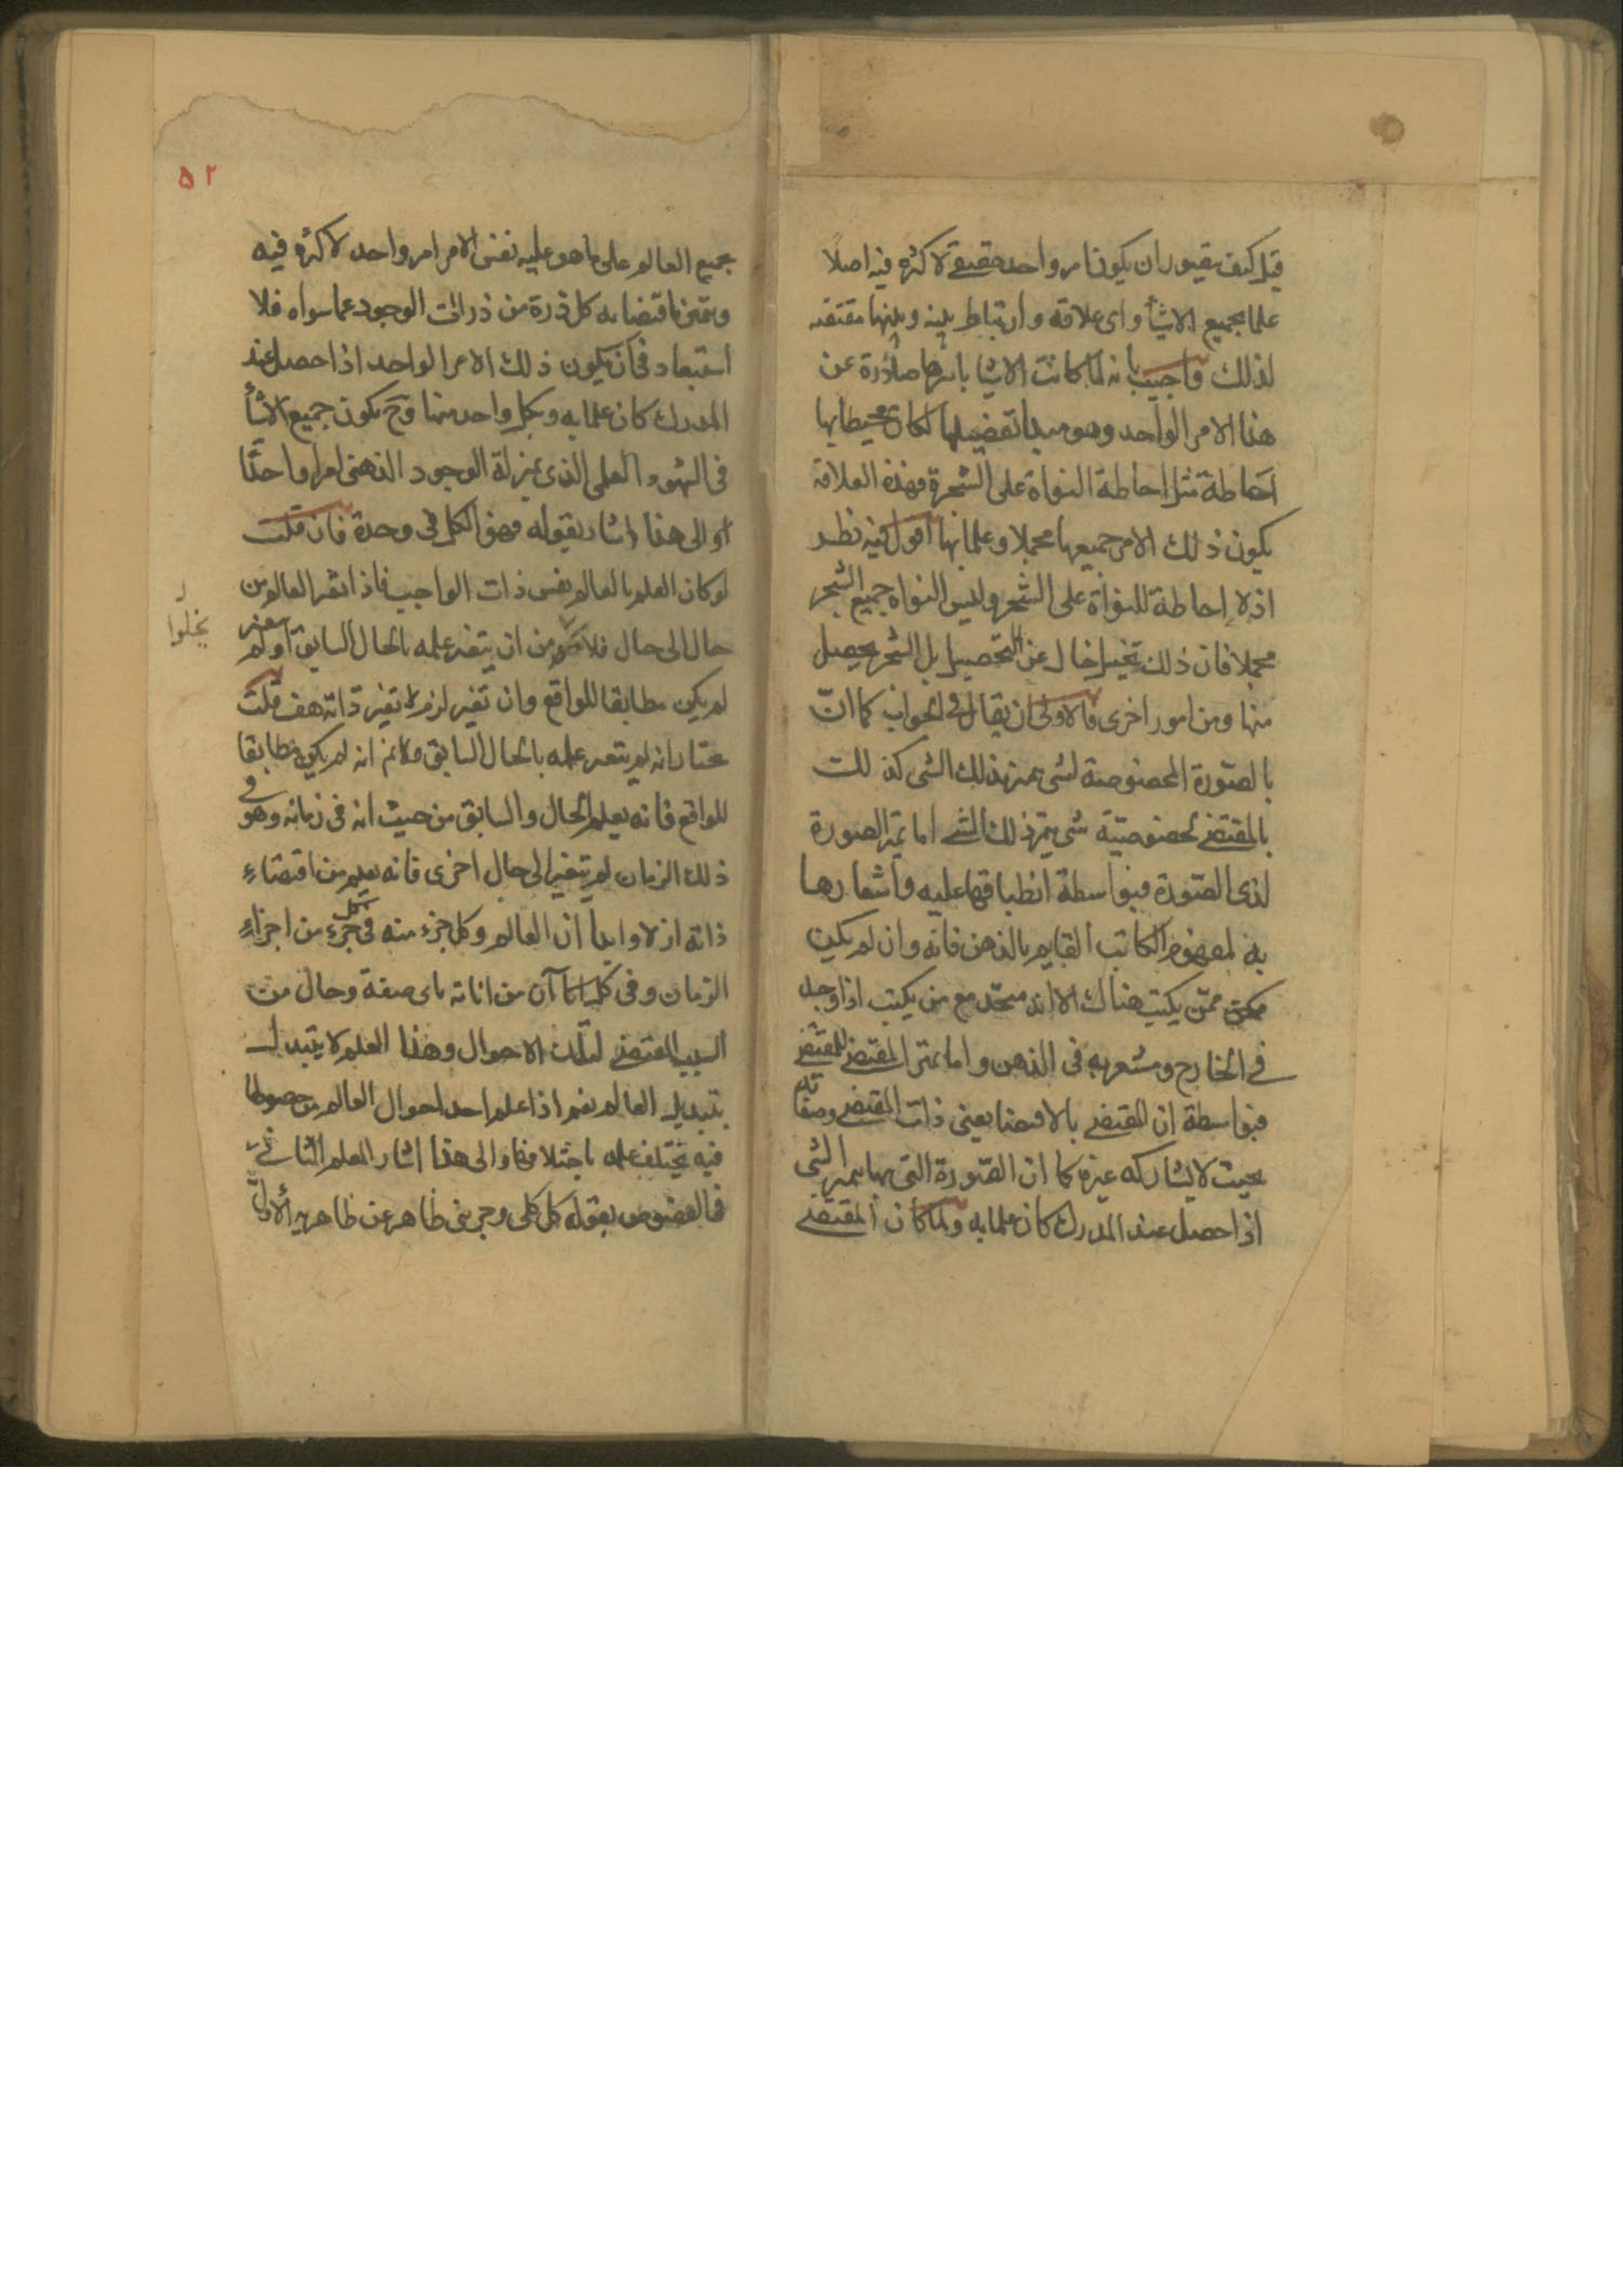 قيل كيف يتصور ان يكون امر واحد حقيقى لا كثره فيه اصلاً
علما بجميع الاشيأ واى علاقة وارتباط بينه وبينها مقتضيه
لذلك واجيب بانه لما كانت الاشيا باسرها صادرة عن
هذا الامر الواحد وهو مبدا تفضيلها لكان محيطا بها
احاطة مثل احاطة النواة على الشجرة فهذه العلاقة
يكون ذلك الامر جميعها مجملا وعلما بها اقول فيه نظر
اذ لا احاطة للنواة على الشجر وليس النواه جميع الشجر
مجملا فان ذلك تخيل خال عن التحصيل بل الشجر يحصل
منها ومن امور اخرى فالاولى ان يقال فى الجواب كما انّ
بالصّورة المخصوصة لشى يتميز ذلك الشى كذلك
بالمقتضى لخصوصيّة شى يتميز ذلك الشى اما تميز الصورة
لذى الصّورة فبواسطة انطباقها عليه واشعارها
به لمفهوم الكاتب القايم بالذهن فانه وان لم يكن
ممكن ممن يكتب هناك الا انه متحد مع من يكتب اذا وجد
فى الخارج ومشعر به فى الذهن واما تميز المقتضى للمقتضى
فبواسطة ان المقتضى بالاقتضا يعنى ذات المقتضى وصفاته
بحيث لا يشاركه غيره كما ان الصّورة التى بها يتميز الشى
اذا حصل عند المدرك كان علما به ولما كان المقتضى
۵۲
بجميع العالم على ما هو عليه نفس الامر امر واحد لا كثره فيه
ويتميز باقتضايه كل ذرة من ذرات الوجود عما سواه فلا
استبعاد فى ان يكون ذلك الامر الواحد اذا حصل عند
المدرك كان علما به وبكل واحد منها وح يكون جميع الاشيأ
فى الشهود العلمى الذى بمنزلة الوجود الذهنى امرا واحدًا
والى هذا اشار بقوله فهو الكل فى وحدة فان قلت
لو كان العلم بالعالم نفس ذات الواجب فاذا تغير العالم من
حال الى حال فلا يخلوا من ان يتغير علمه بالحال السابق او لم يتغير
يخلوا
لم يكن مطابقا للواقع وان تغير لزم تغير ذاته هف قلت
نختار انه لم يتغير علمه بالحال السابق ولا نم انه لم يكن مطابقا
للواقع فانه يعلم الحال والسابق من حيث انه فى زمانه وهو فى
ذلك الزمان لم يتغير الى حال اخرى فانه يعلم من اقتضاء
ذاته ازلا وابدا ان العالم وكل جزء منه فى كل جزء من اجزاء
الزمان وفى كل آن من اناته باى صفة وحال من
السبب المقتضى لتلك الاحوال وهذا العلم لا يتبدل
بتبديل العالم نعم اذا علم احد احوال العالم من حصولها
فيه يختلف علمه باختلافها والى هذا اشار المعلم الثانى
فى الفصوص بقوله كل كلى وجزئى ظاهر عن ظاهريه الاولى